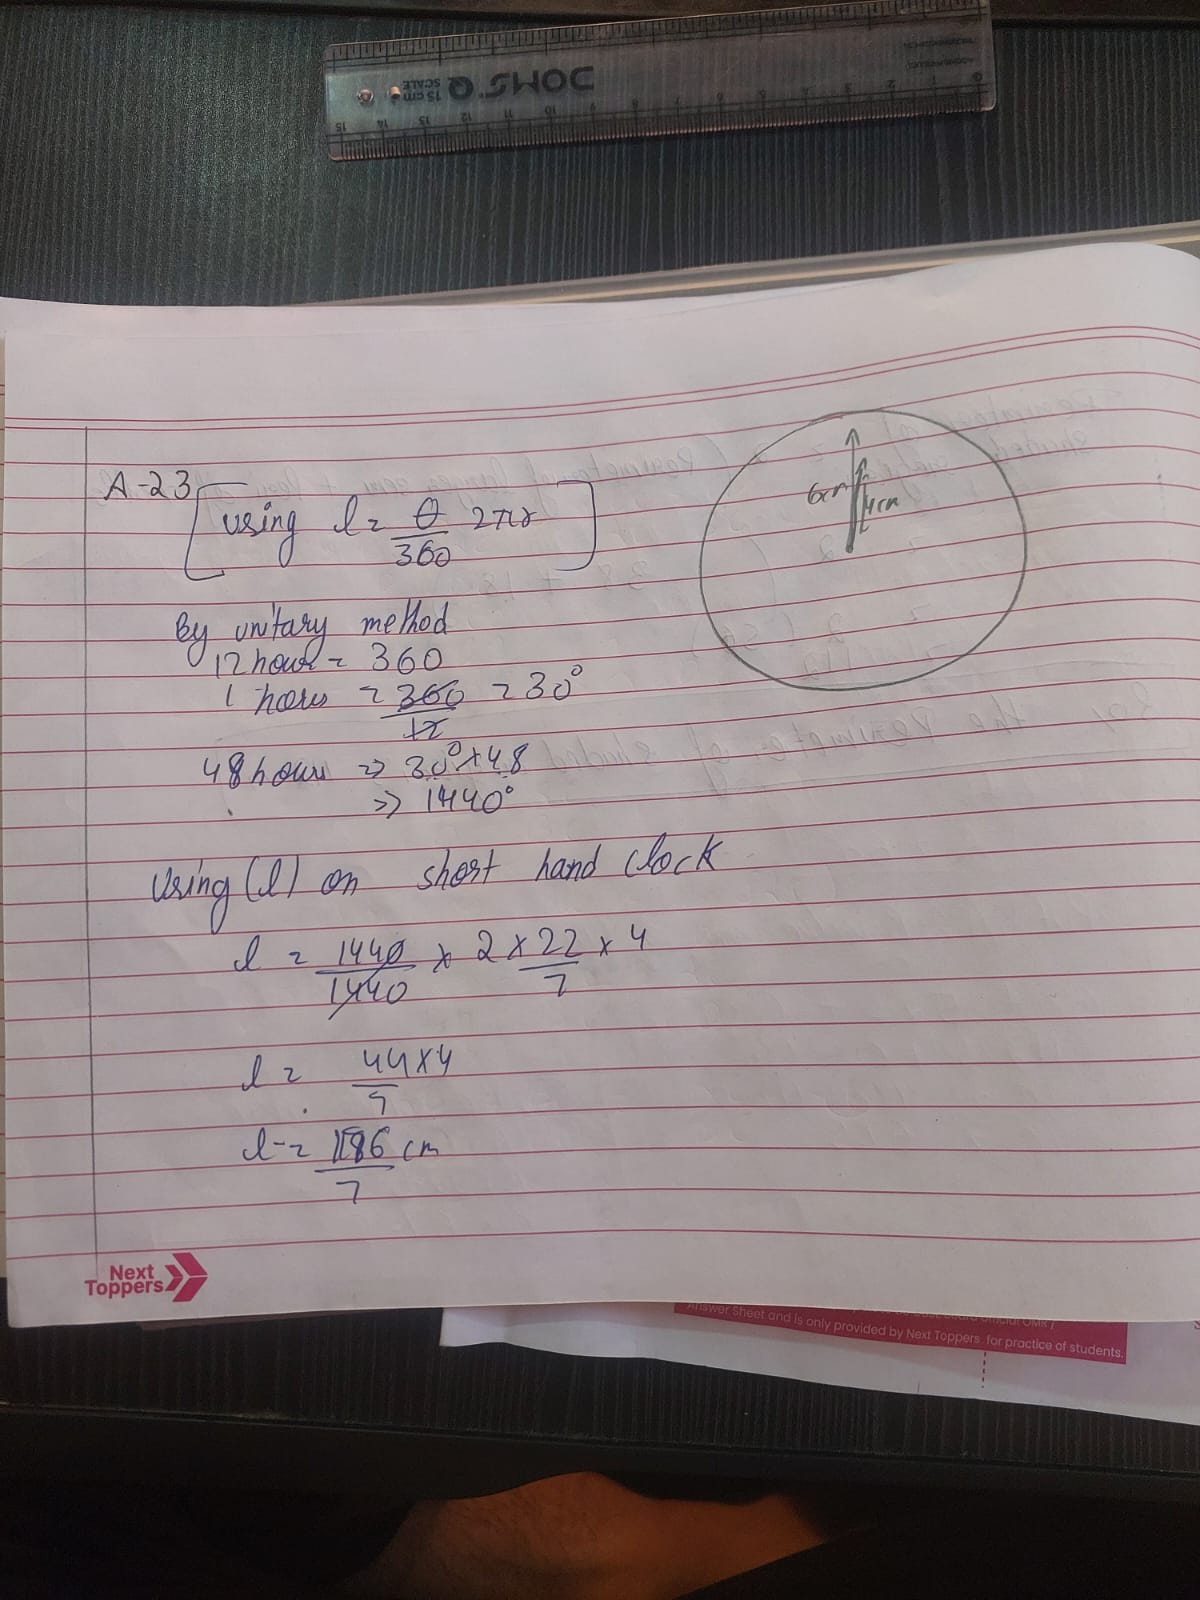 DOMS Q SCALE
15 cm
15 14 13 12 11 10 9 8 7 6 5 4 3 2 1 0
A-23
[using l = θ/360 2πr]
6cm 4cm
By unitary method
12 hour = 360
1 hours = 360/12 = 30°
48 hours => 30° × 48
=> 1440°
Using (l) on short hand clock
l = 1440/1440 × 2 × 22/7 × 4
l = 44×4/7
l = 186/7 cm
Next
Toppers
Answer Sheet and is only provided by Next Toppers for practice of students.